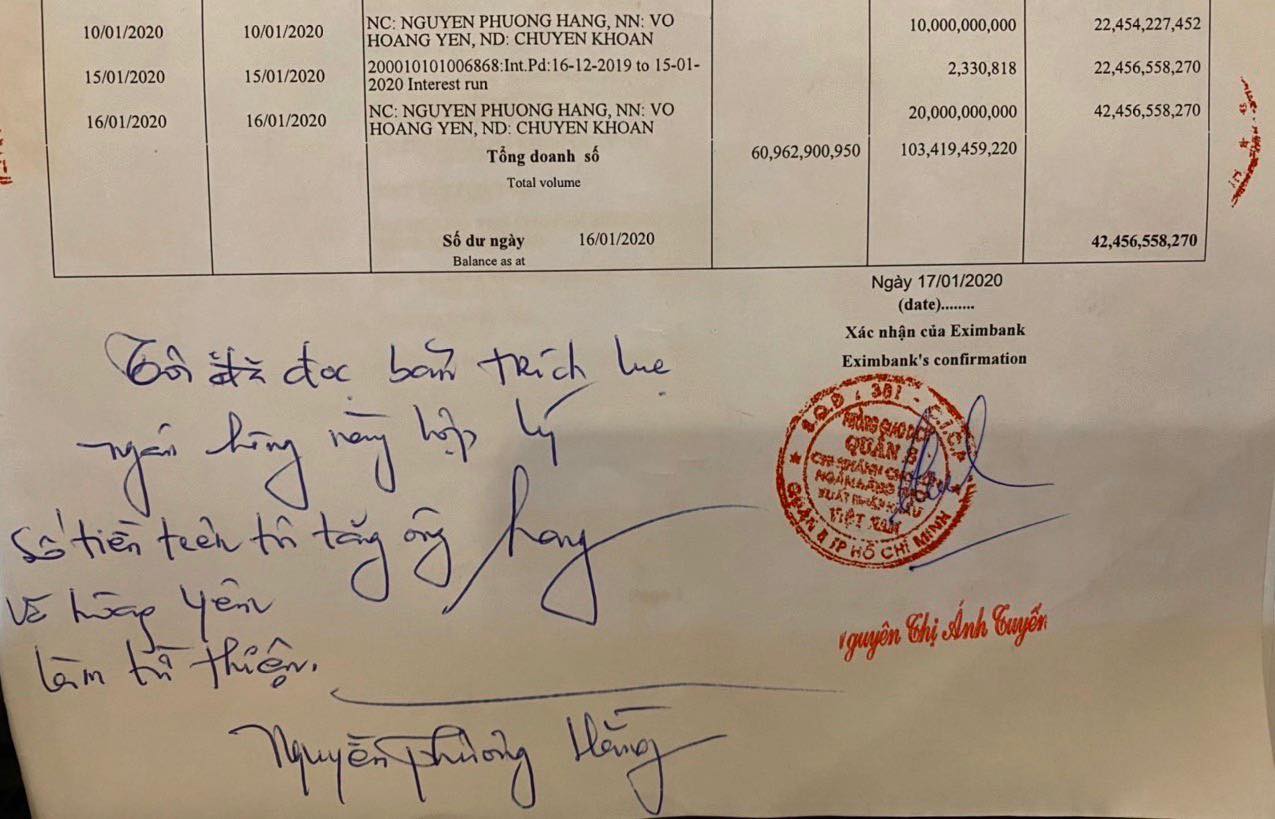 10/01/2020 10/01/2020 NC: NGUYEN PHUONG HANG, NN: VO 10,000,000,000 22,454,227,452
HOANG YEN, ND: CHUYEN KHOAN
15/01/2020 15/01/2020 200010101006868:Int.Pd:16-12-2019 to 15-01- 2,330,818 22,456,558,270
2020 Interest run
16/01/2020 16/01/2020 NC: NGUYEN PHUONG HANG, NN: VO 20,000,000,000 42,456,558,270
HOANG YEN, ND: CHUYEN KHOAN
Tổng doanh số 60,962,900,950 103,419,459,220
Total volume
Số dư ngày 16/01/2020 42,456,558,270
Balance as at
Ngày 17/01/2020
(date)........
Xác nhận của Eximbank
Eximbank's confirmation
Tôi đã đọc bản trích lục
ngân hàng này hợp lý
Số tiền trên tôi tặng ông
Võ Hoàng Yên
làm từ thiện.
Hang
Nguyễn Phương Hằng
PHÒNG GIAO DỊCH
QUẬN 8
VIỆT NAM
QUẬN 8 TP HỒ CHÍ MINH
guyễn Thị Ánh Tuyến